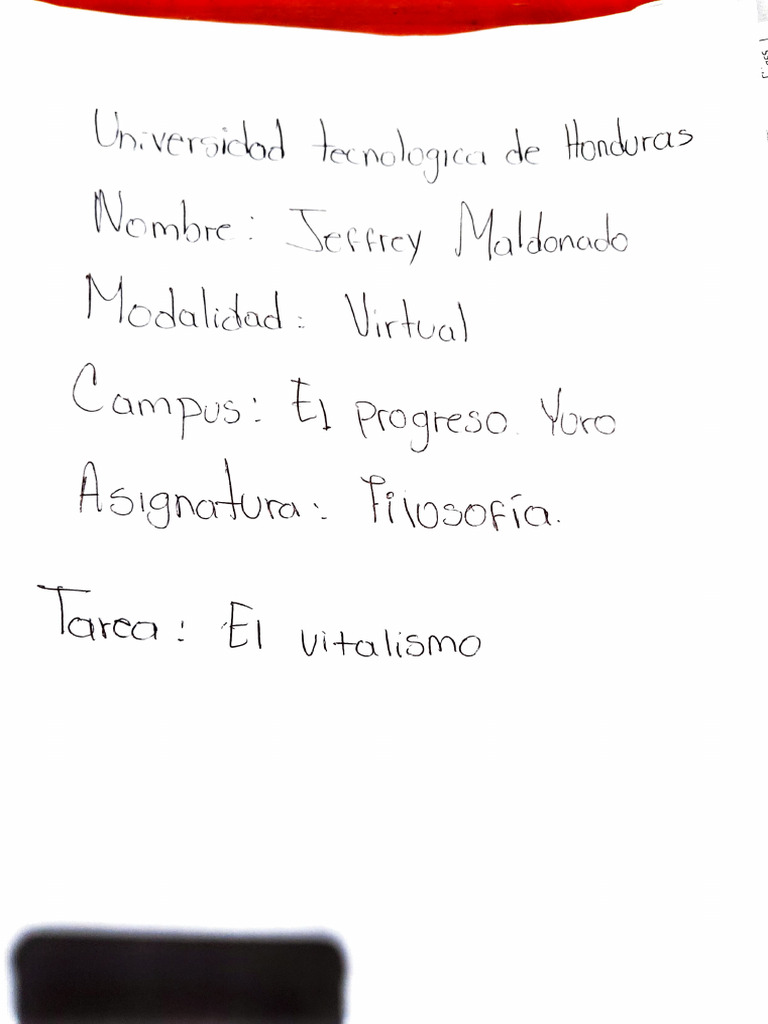 Universidad tecnologica de Honduras
Nombre: Jeffrey Maldonado
Modalidad: Virtual
Campus: El progreso. Yoro
Asignatura: Filosofía.
Tarea: El vitalismo